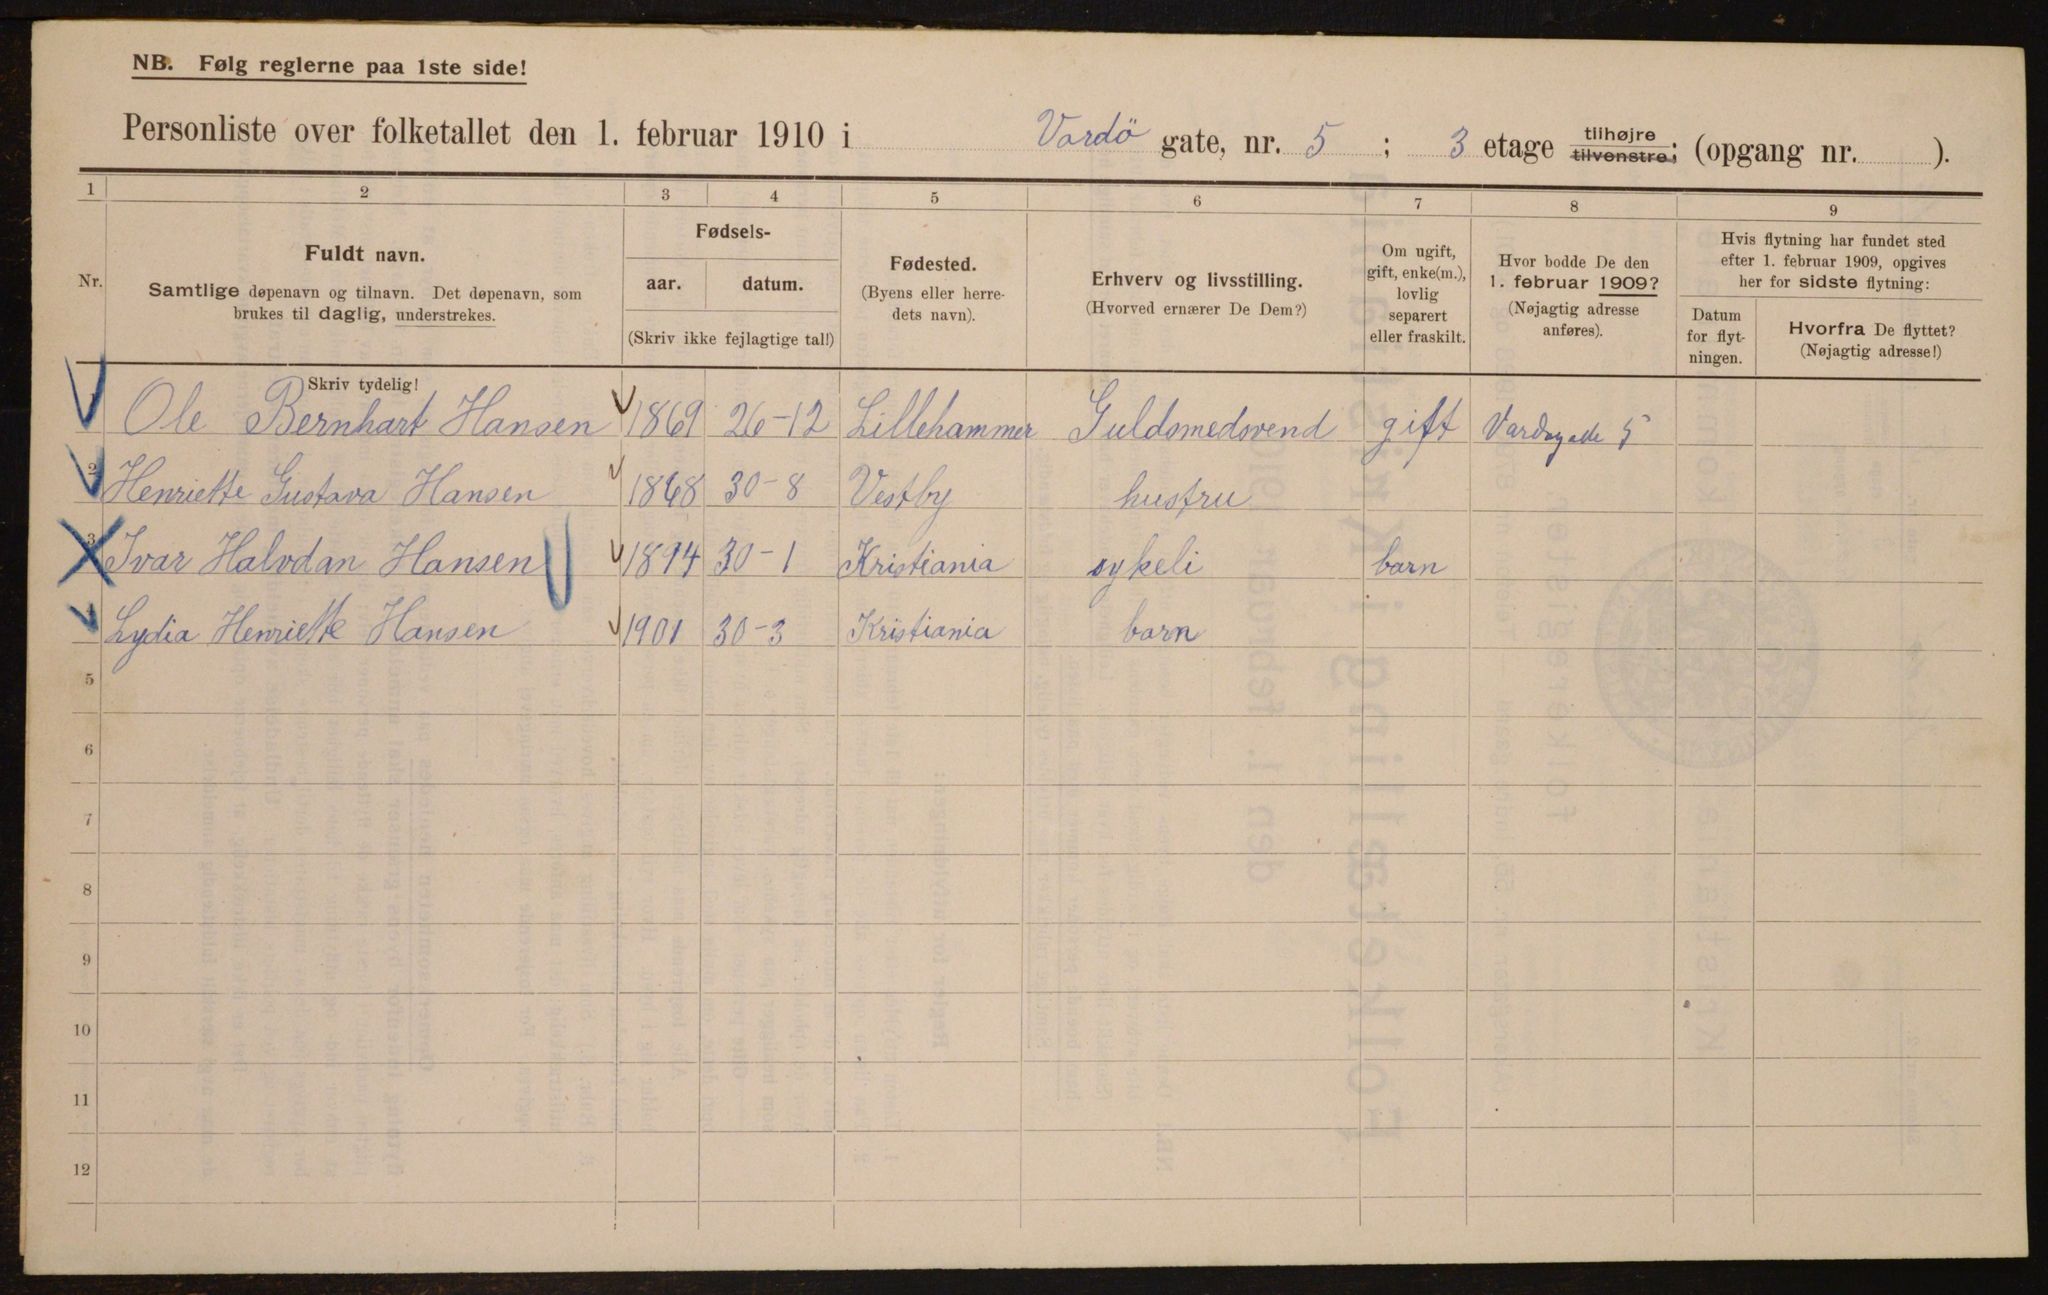 NB. Følg reglerne paa 1ste side!
Personliste over folketallet den 1. februar 1910 i Vardö gate, nr. 5 ; 3 etage tilhøjre tilvenstre; (opgang nr. ).
1 2 3 4 5 6 7 8 9
Nr.
Fuldt navn.
Samtlige døpenavn og tilnavn. Det døpenavn, som
brukes til daglig, understrekes.
Skriv tydelig!
Fødsels-
aar. datum.
(Skriv ikke fejlagtige tal!)
Fødested.
(Byens eller herre-
dets navn).
Erhverv og livsstilling.
(Hvorved ernærer De Dem?)
Om ugift,
gift, enke(m.),
lovlig
separert
eller fraskilt.
Hvor bodde De den
1. februar 1909?
(Nøjagtig adresse
anføres).
Hvis flytning har fundet sted
efter 1. februar 1909, opgives
her for sidste flytning:
Datum
for flyt-
ningen.
Hvorfra De flyttet?
(Nøjagtig adresse!)
Ole Bernhart Hansen 1869 26-12 Lillehammer Guldsmedsvend gift Vardøgade 5
2 Henriette Gustava Hansen 1868 30-8 Vestby hustru
3 Ivar Halvdan Hansen 1894 30-1 Kristiania barn
Lydia Henriette Hansen 1901 30-3 Kristiania barn
5
6
7
8
9
10
11
12